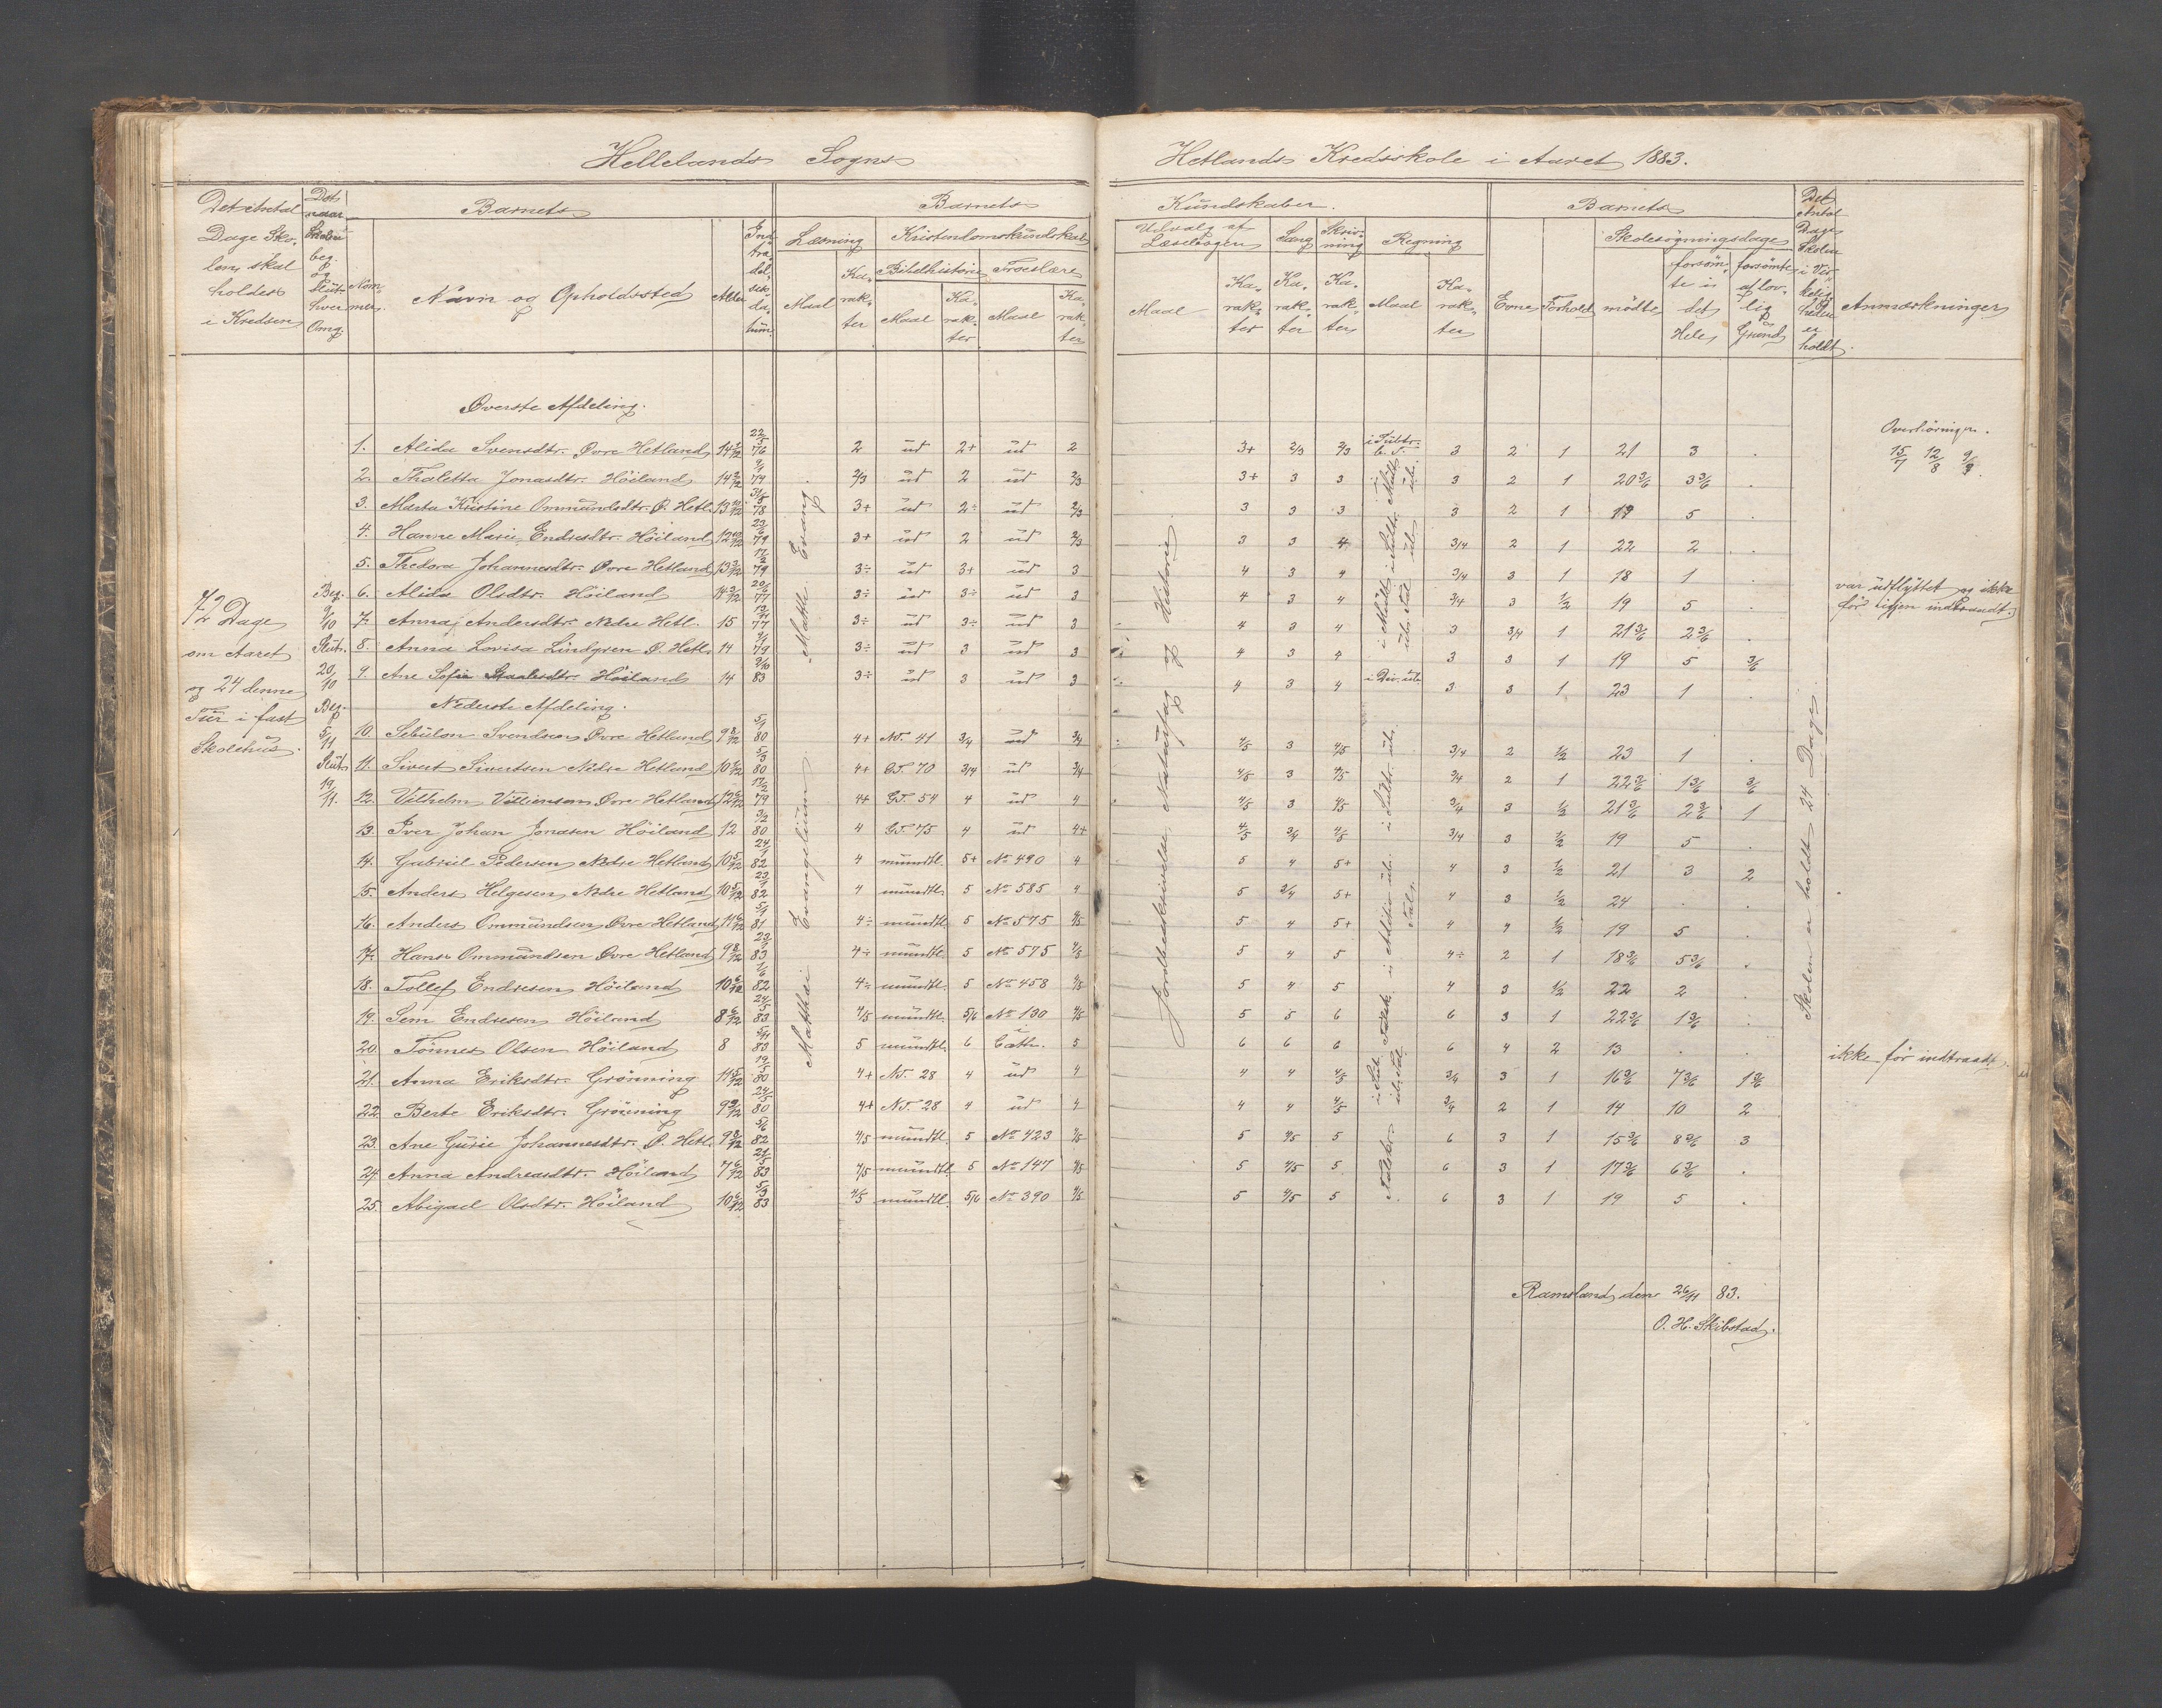 Hellelands Sogns
Hetlands Kredsskole i Aaret 1883.
Det Antal Dage Skolen skal holdes i Kredsen
Det naar Skolen beg. og slut. hver Omg.
Nommer
Barnets
Navn og Opholdssted
Alder
Indtrædelsesdatum
Barnets Kundskaber.
Læsning
Maal
Karakter
Kristendomskundskab
Bibelhistorie
Maal
Karakter
Troeslære
Maal
Karakter
Udvalg af Læsebogen
Maal
Karakter
Sang
Karakter
Skrivning
Karakter
Regning
Maal
Karakter
Barnets
Evne
Forhold
Skolesøgningsdage
mødte
forsømte i det Hele
forsømte af lovlig Grund
Det Antal Dage Skolen i Virkeligheden er holdt.
Anmærkninger
72 Dage
om Aaret
og 24 denne
Tur i fast
Skolehus.
Beg. 9/10
Slut. 20/10
Beg. 5/11
Slut. 19/11.
Øverste Afdeling.
1. Alida Svensdtr. Øvre Hetland 22/5 76 2 ud 2+ ud 2 3+ 2/3 2/3 3 2 1 21 3 .
2. Thaletta Jonasdtr. Höiland 2/3 ud 2 ud 2/3 3+ 3 3 3 2 1 20 3/6 3 3/6 .
3. Marta Kristine Ommundsdtr. Ø. Hetl. 3+ ud 2÷ ud 2/3 3 3 3 3 2 1 19 5 .
4. Hanne Marie Endresdtr. Höiland 3+ ud 2 ud 2/3 3 3 4 3/4 2 1 22 2 .
5. Thedora Johannesdtr. Øvre Hetland 3÷ ud 3+ ud 3 4 3 4 3/4 3 1 18 1 . var udflyttet og ikke før igjen indtraadt.
6. Alida Olsdtr. Höiland 3÷ ud 3÷ ud 3 4 3 4 3/4 3 1/2 19 5 .
7. Anna Andersdtr. Nedre Hetl. 15 3÷ ud 3÷ ud 3 4 3 4 3 3/4 1 21 3/6 2 3/6 .
8. Anna Lovisa Lindgren Ø. Hetl. 14 3÷ ud 3 ud 3 4 3 4 3 3 1 19 5 3/6
9. Ane Sofie Staalesdtr. Höiland 14 2/10 83 3÷ ud 3 ud 3 4 3 4 3 3 1 23 1 .
Nederste Afdeling.
10. Sebulon Svendsen Øvre Hetland 9 8/12 5/1 80 4+ N.T. 41 3/4 ud 3/4 4/5 3 4/5 3/4 2 1/2 23 1 .
11. Sivert Sivertsen Nedre Hetland 5/3 80 4+ G.T. 70 3/4 ud 3/4 4/5 3 4/5 3/4 2 1 22 3/6 1 3/6 3/6
12. Vilhelm Villiensen Øvre Hetland 17/2 79 4+ G.T. 54 4 ud 4 4/5 3 4/5 3/4 3 1/2 21 3/6 2 3/6 1
13. Iver Johan Jonasen Höiland 12 3/2 80 4 G.T. 75 4 ud 4+ 4/5 3/4 4/5 3/4 3 1/2 19 5 .
14. Gabriel Pedersen Nedre Hetland 10 5/12 24/1 82 4 mundtl. 5+ No 490 4 5 4 5+ 4 3 1/2 21 3 2
15. Anders Helgesen Nedre Hetland 10 5/12 23/1 82 4 mundtl. 5 No 585 4 5 3/4 5+ 4 3 1/2 24 . .
16. Anders Ommundsen Øvre Hetland 5/1 81 4÷ mundtl. 5 No 575 4/5 5 4 5+ 4 4 1/2 19 5 .
17. Hans Ommundsen Øvre Hetland 9 8/12 23/1 83 4÷ mundtl. 5 No 575 4/5 5 4 5 4÷ 2 1 18 3/6 5 3/6 .
18. Tollef Endresen Höiland 1/6 82 4÷ mundtl. 5 No 458 4/5 5 4 5 4 3 1/2 22 2 .
19. Sem Endresen Höiland 24/5 83 4/5 mundtl. 5/6 No 130 4/5 5 5 6 6 3 1 22 3/6 1 3/6 .
20. Tönnes Olsen Höiland 8 5/11 83 5 mundtl. 6 i Cath. 5 6 6 6 6 4 2 13 . . ikke før indtraadt.
21. Anna Eriksdtr. Grönning 11 5/12 19/5 80 4+ N.T. 28 4 ud 4 4 4 4/5 3/4 3 1 16 3/6 7 3/6 1 3/6
22. Berte Eriksdtr. Grönning 24/5 80 4+ N.T. 28 4 ud 4 4 4 4/5 3/4 2 1 14 10 2
23. Ane Gurie Johannesdtr. Ø. Hetl. 9 8/12 5/6 82 4/5 mundtl. 5 No 423 4/5 5 4/5 5 6 3 1 15 3/6 8 3/6 3
24. Anna Andreasdtr. Höiland 7 6/12 21/5 83 4/5 mundtl. 5 No 147 4/5 5 4/5 5 6 3 1 17 3/6 6 3/6 .
25. Abigael Olsdtr. Höiland 5/3 83 4/5 mundtl. 5/6 No 390 4/5 5 4/5 5 6 3 1 19 5 .
Matth. Evang.
Matthæi Evangelium
Jordbeskrivelse, Naturfag og Historie
Skolen er holdt 24 Dage
Overhöringer.
15/7 12/8 9/9
Ramsland den 26/11 83.
O. H. Skibstad.